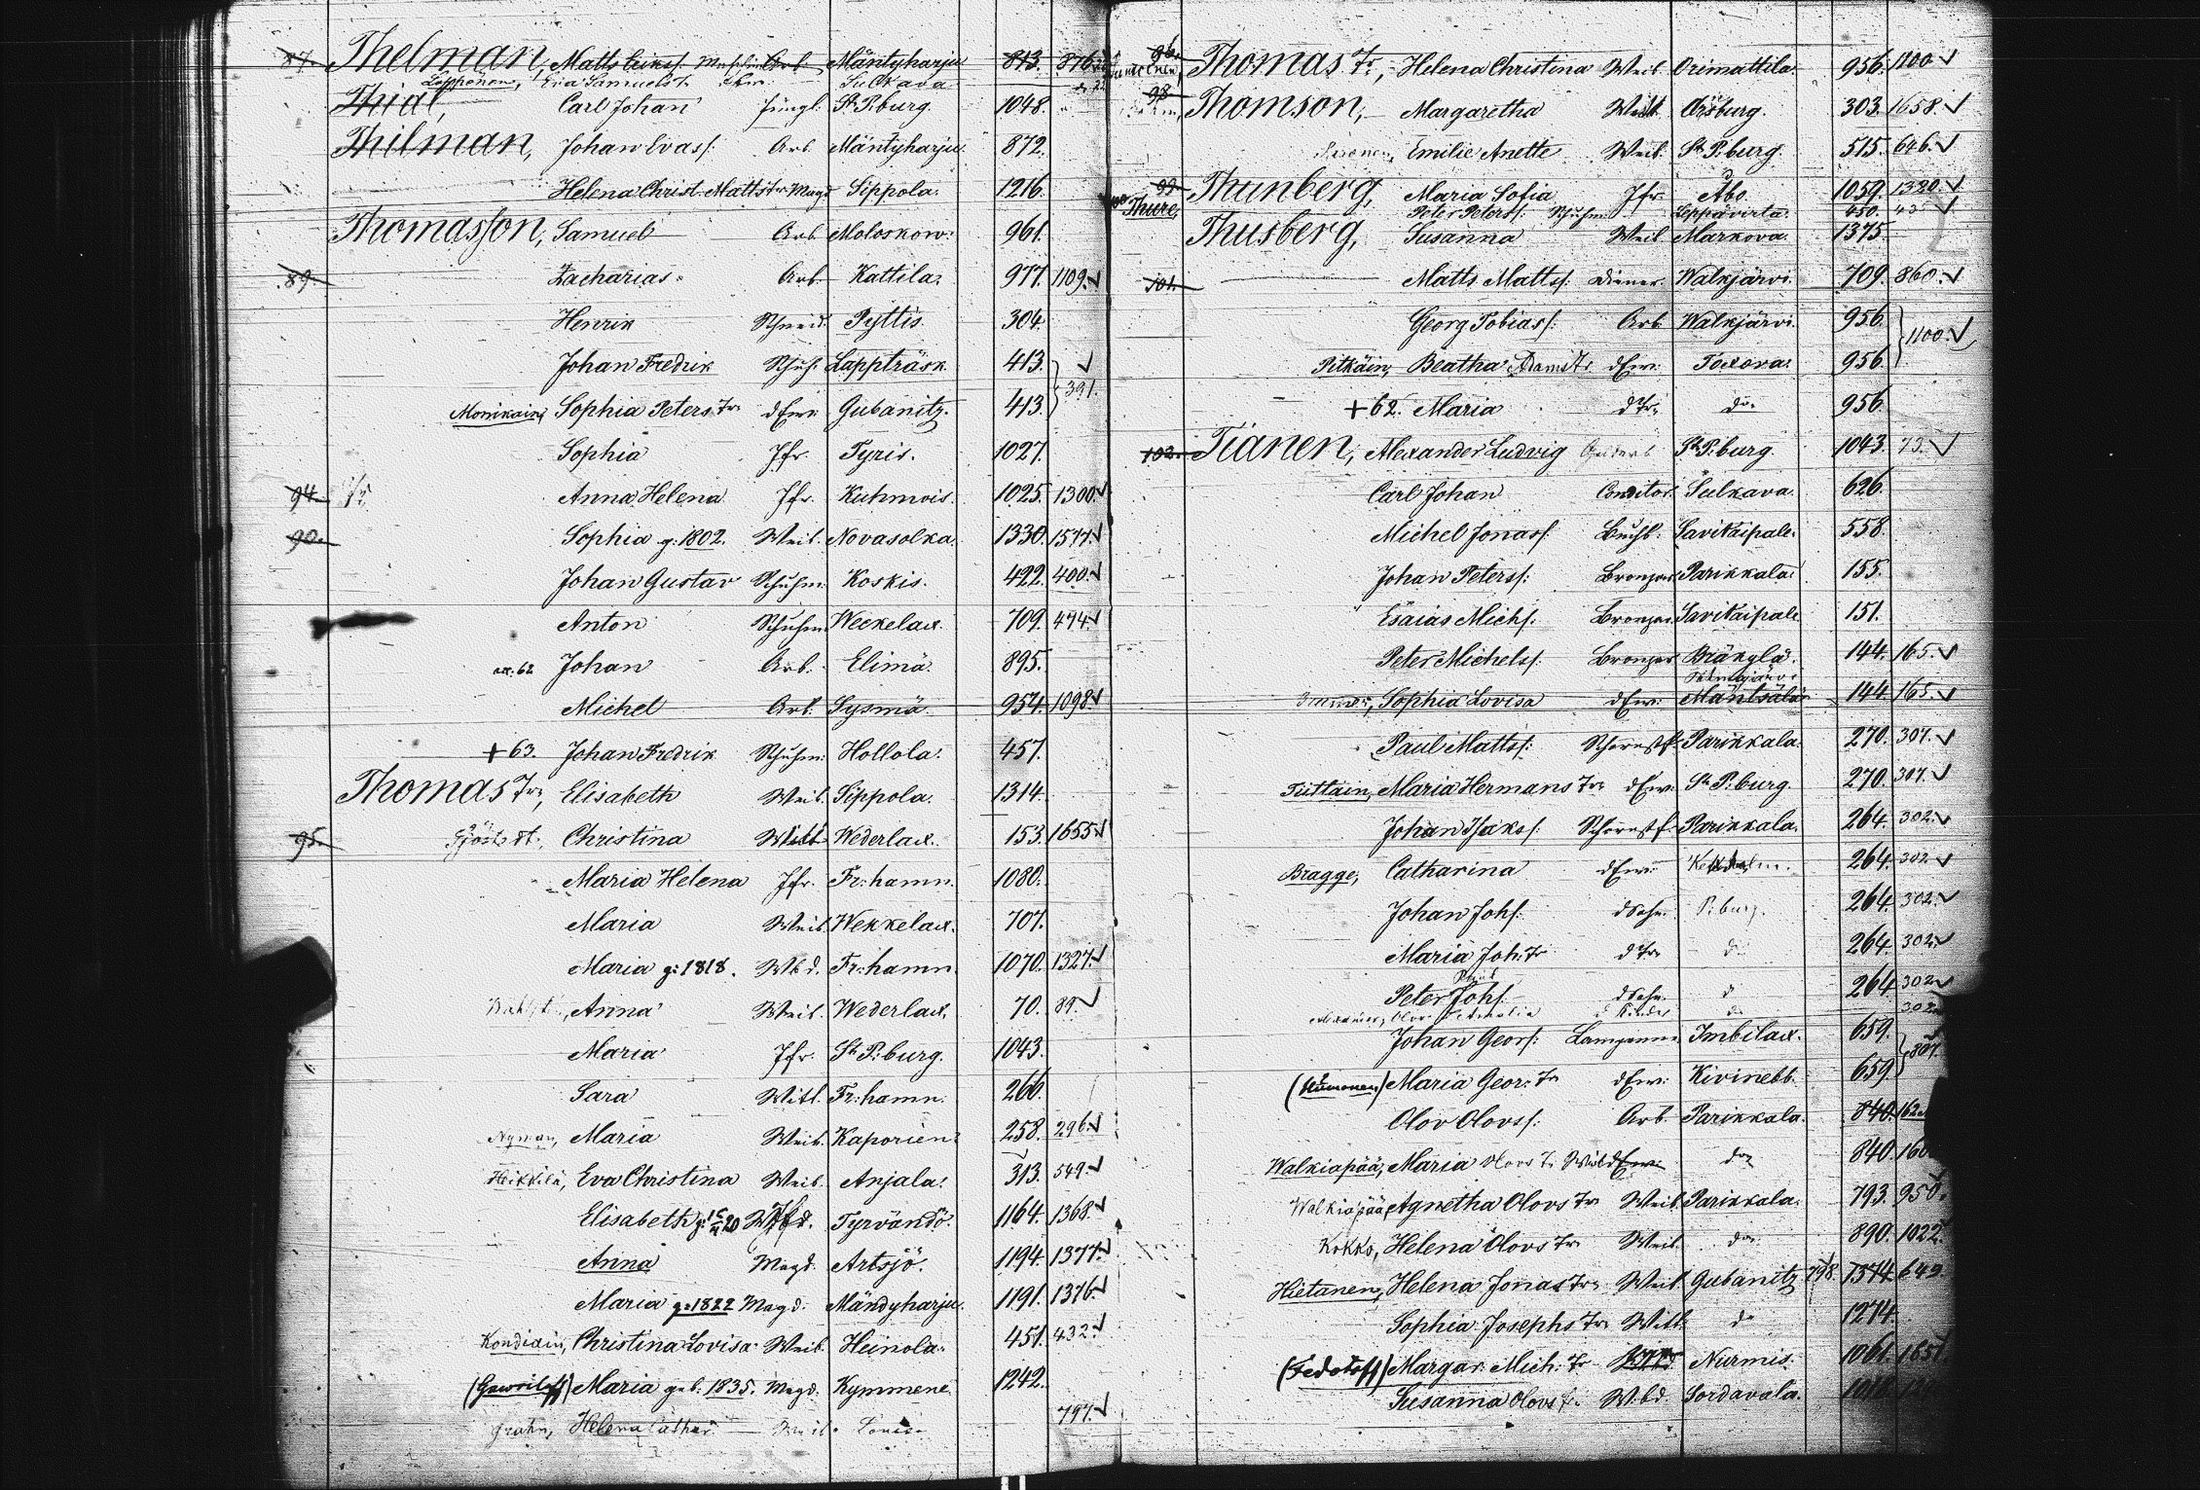 87. Thelman, Matts Erikss. Arb. Mäntyharju 843. 876
Leppänen, Eva Samuelst. Sulkava
Thial, Carl Johan Jüngl. St P.burg. 1048.
Thilman, Johan Evass: Arb. Mäntyharju. 872.
Helena Christ. Mattstr. Magd Sippola. 1216.
Thomasson, Samuel Arb. Moloskow. 961.
89. Zacharias. Arb. Kattila. 977. 1109.✓
Henrik Schneid. Pyttis. 304.
Johan Fredrik Schuh. Lappträsk. 413. ✓
391.
Monikain, Sophia Peters Tr. d Ew: Gubanitz. 413.
Sophia Jfr. Tyris. 1027.
94. Anna Helena Jfr. Kuhmois. 1025. 1300.✓
90. Sophia g: 1802. Weib. Novasolka. 1330. 1577.✓
Johan Gustav Schuhm. Koskis. 422. 400.✓
Anton Schuhm. Weckelax. 709. 494.✓
62 Johan Arb. Elimä. 895.
Michel Arb. Sysmä. 954. 1098.✓
+ 63. Johan Fredrik Schuhm. Hollola. 457.
Thomas Tr., Elisabeth Weib. Sippola. 1314.
95. Christina Weib. Wederlax. 153. 1655.✓
Maria Helena Jfr. Fr:hamn. 1080.
Maria Weib. Wekkelax. 707.
Maria g: 1818. Wbd. Fr:hamn. 1070. 1327.✓
Anna Weib. Wederlax. 70. 89.✓
Maria Jfr. St P:burg. 1043.
Sara Witt. Fr:hamn. 266.
Nyman, Maria Weib. Kaporien. 258. 296.✓
Heikkilä, Eva Christina Weib. Anjala. 313. 549.✓
Elisabeth Tyrvändö. 1164. 1368.✓
Anna Magd. Artsjö. 1194. 1377.✓
Maria g: 1822 Magd. Mändyharju. 1191. 1376.✓
Kondiain, Christina Lovisa. Weib. Heinola. 451. 432.✓
(Gawriloff) Maria geb. 1835. Magd. Kymmene. 1242.
Grahn, Helena Cathar. Weib. Lovisa 797.✓
96. Thomas Tr., Helena Christina Weib. Orimattila. 956. 1100.✓
98. Thomson, Margaretha Arsburg. 303. 1658.✓
Emilie Anette Weib. St P:burg. 515. 646.✓
99. Thunberg, Maria Sofia Jfr. Åbo. 1059. 1320.✓
Thure, Peter Peterss: Schuhm. Leppävirta. 450. 43 ✓
Thusberg, Susanna Weib Markova. 1375.
101. Matts Mattss: Diener. Walkjärvi. 709. 860.✓
Georg Tobiass: Arb. Walkjärvi. 956.
1100.✓
Pitkäin, Beatha Adamstr. d Ew: Toxova. 956.
+ 62. Maria d Tr. do. 956.
102. Tianen, Alexander Ludvig St P:burg. 1043. 73.✓
Carl Johan Conditor. Sulkava. 626.
Michel Jonass: Buchb. Savitaipale. 558.
Johan Peterss: Bronzar. Parikkala. 155.
Esaias Michs. Bronzar. Savitaipale. 151.
Peter Michelss: Bronzar. Bränylä. 144. 165.✓
Sophia Lovisa d Ew: Mäntsälä. 144. 165.✓
Paul Mattss: Schornstf. Parikkala. 270. 307.✓
Tiittain, Maria Hermans Tr. d Ew: St P:burg. 270. 307.✓
Johan Isakss: Schornstf. Parikkala. 264. 302.✓
Bragge, Catharina d Ew: Kexholm. 264. 302.✓
Johan Johs. d Sohn. P:burg. 264. 302.✓
Maria Joh. Tr d Tr. d 264. 302.✓
Peter Johs. d Sohn. d 264. 302.✓
302
Johan Geors: Imbilax. 659.
807.
(Humonen) Maria Geor. Tr d Ew: Kivinebb. 659.
Olov Olovss: Arb. Parikkala. 840. 162
Walkiapää, Maria Olovs Tr. do. 840. 160
Walkiapää, Agnetha Olovs Tr. Weib. Parikkala. 793. 950.
Kokko, Helena Olovs Tr. Weib. do. 890. 1022.
Hietanen, Helena Jonas Tr. Weib. Gubanitz 798. 1374. 649.
Sophia Josephs Tr. Witt. do 1274.
(Fedotoff) Margar. Mich. Tr. Nurmis. 1061. 1651
Susanna Olovs Tr. Wbd. Sordavala.